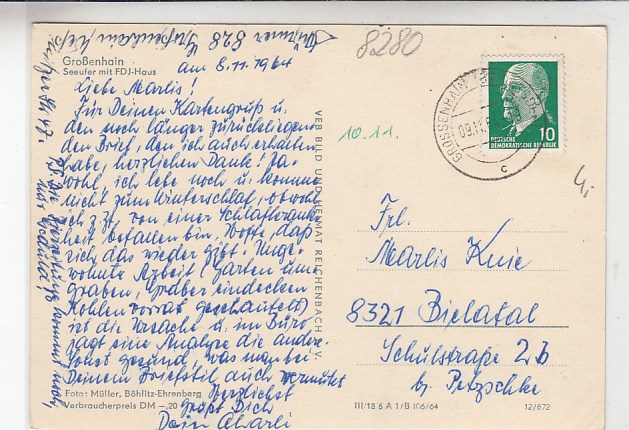 Großenhain
Seeufer mit FDJ-Haus
828 Großenhain
am 8.11.1964
Liebe Marlis!
Für Deinen Kartengruß u.
den noch länger zurückliegenden
den Brief, den ich auch erhalten
habe, herzlichen Dank! Ja-
wohl, ich lebe noch u. komme
nicht zum Winterschlaf, obwohl
ich z. Zt. von einer Schlafkrank-
heit befallen bin. Hoffe, daß
sich das wieder gibt. Unge-
wohnte Arbeit (Garten um-
graben, Gräber eindecken
Kohlenvorrat geschaufelt)
ist die Ursache u. im Büro
jagt eine Analyse die andere.
Sonst gesund, was man bei
Deinem Briefstil auch vermutet
Herzlichst
grüßt Dich
Dein Charli
Foto: Müller, Böhlitz-Ehrenberg
Verbraucherpreis DM –,20
VEB BILD UND HEIMAT REICHENBACH i. V.
8280
10.11.
GROSSENHAIN
09.11.
c
10
DEUTSCHE
DEMOKRATISCHE REPUBLIK
4,-
Frl.
Marlis Knie
8321 Bielatal
Schulstraße 2b
b. Petzschke
III/18/6 A 1/B 106/64
12/872